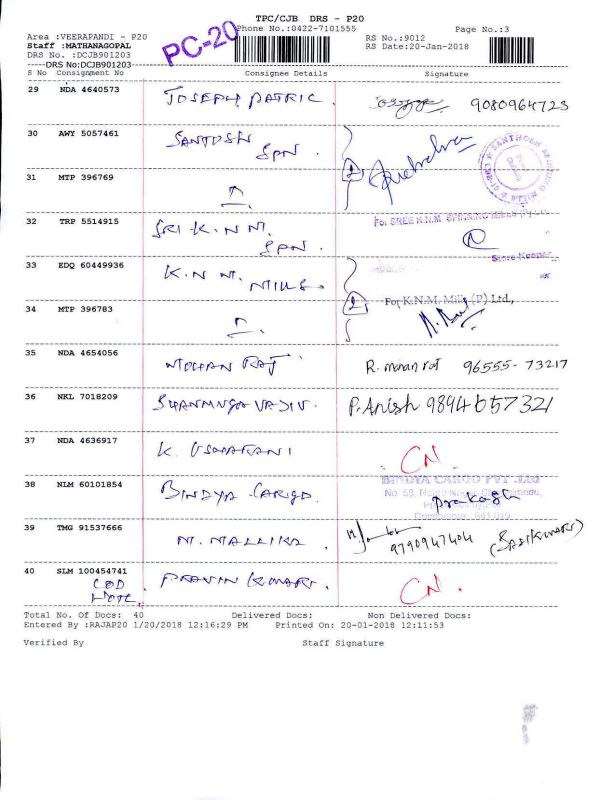 TPC/CJB DRS - P20
PC-20
Phone No.:0422-7101555
Page No.:3
Area :VEERAPANDI - P20
RS No.:9012
Staff :MATHANAGOPAL
RS Date:20-Jan-2018
DRS No. :DCJB901203
-----DRS No:DCJB901203-----
S No Consignment No Consignee Details Signature
29 NDA 4640573 JOSEPH PATRIC 9080964723
30 AWY 5057461 SANTOSH
SPN.
2
31 MTP 396769
32 TRP 5514915 SRI-K.N.M. For SREE K.N.M. SPINNING MILLS (P) LTD
SPN.
Store Keeper
33 EDQ 60449936 K.N.M. MILLS.
2 For K.N.M. Mills (P) Ltd.,
34 MTP 396783
35 NDA 4654056 MOHAN RAJ R. mohan raj 96555-73217
36 NKL 7018209 SHANMUGAVADIV. P. Anish 9894657321
37 NDA 4636917 K. USHARANI CN.
38 NLM 60101854 BINDYA-CARGO. BINDYA CARGO PVT .Ltd
No 58,
prakash
Coimbatore
39 TMG 91537666 M. MALLIKA. 9790947404 (Sasikumar)
40 SLM 100454741 PRAVIN KUMAR. CN.
COD
Total No. Of Docs: 40 Delivered Docs: Non Delivered Docs:
Entered By :RAJAP20 1/20/2018 12:16:29 PM Printed On: 20-01-2018 12:11:53
Verified By Staff Signature